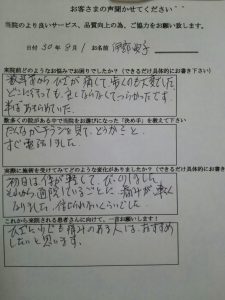 お客さまの声聞かせてください
当院のより良いサービス、品質向上の為、ご協力をお願い致します。
日付 30年8月1 お名前
来院前どのようなお悩みでお困りでしたか？（できるだけ具体的にお書き下さい）
数年前からひざが痛くて歩くのも大変でした
どこに行っても、良くならなくてつらかったです
半ばあきらめていた。
数多くの院がある中で当院をお選びになった「決め手」を教えて下さい
だんながチラシを見て、どうかと
すぐ電話しました。
実際に施術を受けてみてどのような変化がありましたか？（できるだけ具体的にお書き下さい）
初日は、体が軽くて、びっくりしました
それから通院しているごとに、痛みが軽く
なりました。信じられないくらいでした。
これから来院される患者さんに向けて、一言お願いします！
ひざにかぎらず痛みのある人は、おすすめ
したいと思います。